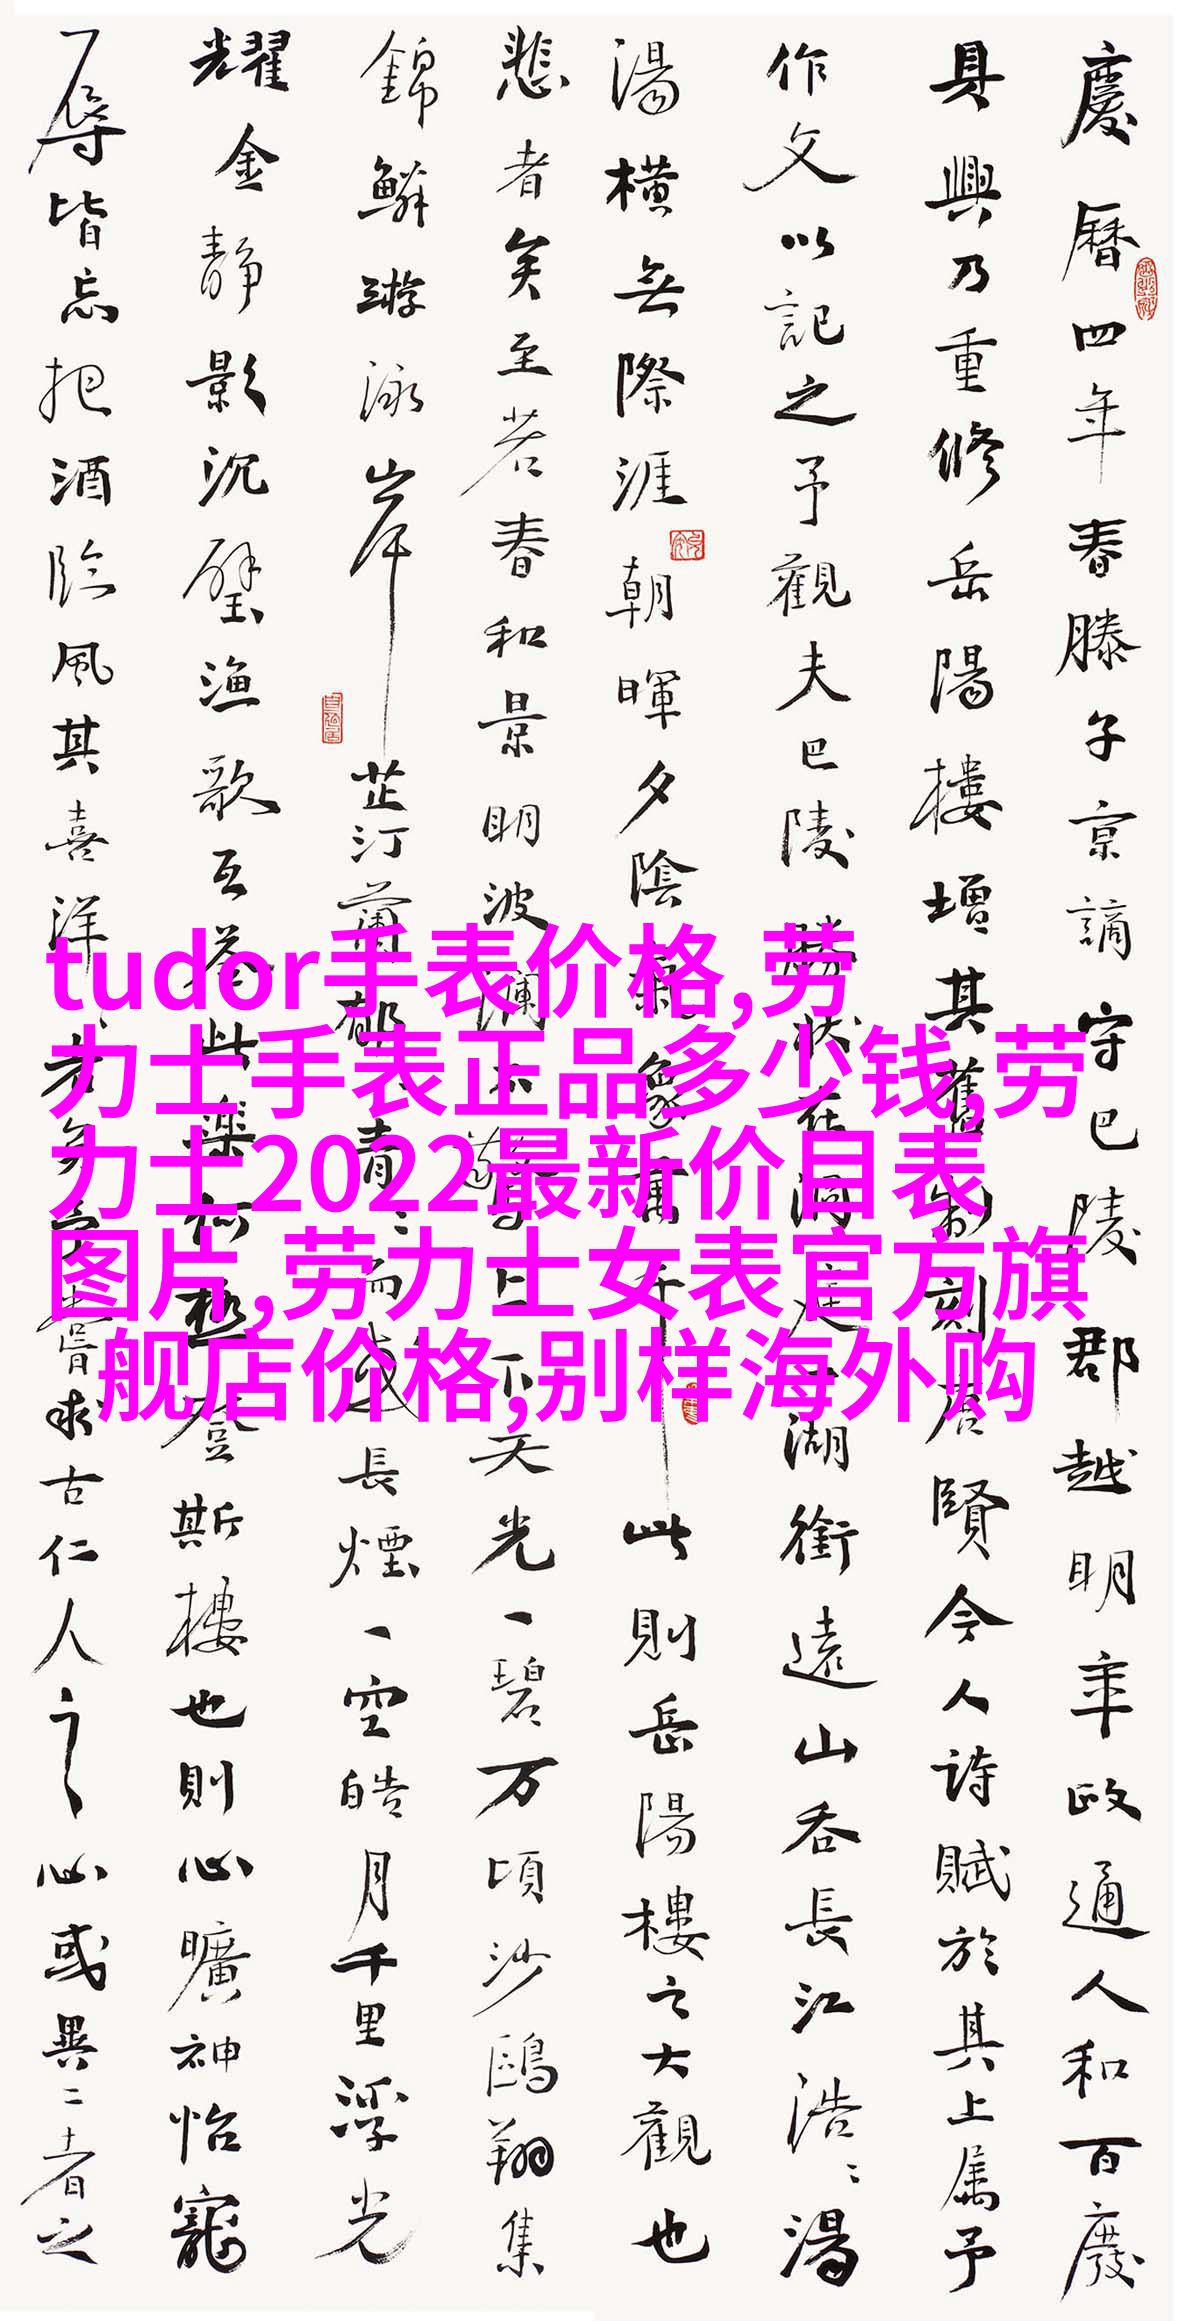 慶曆四年春滕子京謫守巴陵郡越明年政通人和百廢
具興乃重修岳陽樓增其舊制刻唐賢今人詩賦於其上属予
作文以記之予觀夫巴陵勝狀在洞庭一湖銜遠山吞長江浩〻湯
湯橫無際涯朝暉夕陰氣象萬千此則岳陽樓之大觀也
悲者矣至若春和景明波瀾不驚上下天光一碧万頃沙鷗翔集
錦鱗游泳岸芷汀蘭郁〻青〻而或長煙一空皓月千里浮光
耀金静影沉璧渔歌互答此樂何極登斯樓也則心曠神怡寵
辱皆忘把酒臨風其喜洋〻者矣予嘗求古仁人之心或異二者之
tudor手表价格,劳
力士手表正品多少钱,劳
力士2022最新价目表
图片,劳力士女表官方旗
舰店价格,别样海外购